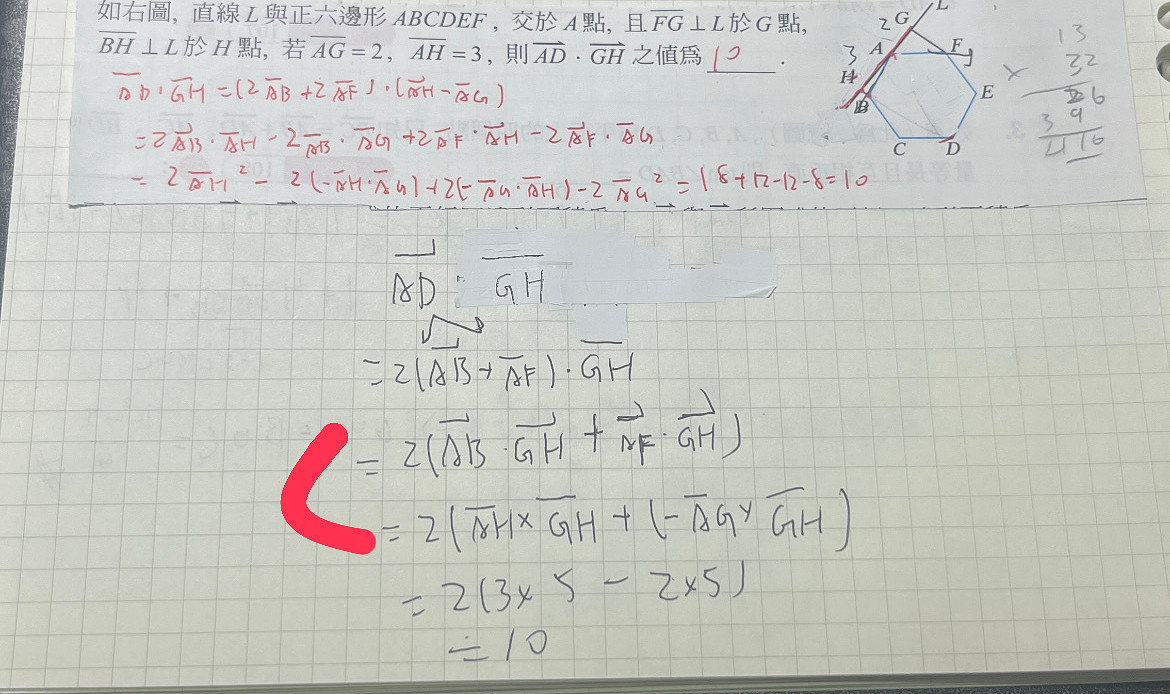 如右圖, 直線 L 與正六邊形 ABCDEF , 交於 A 點, 且 FG ⊥ L 於 G 點,
BH ⊥ L 於 H 點, 若 AG = 2, AH = 3, 則 AD · GH 之值為 10 .
AD · GH = (2AB + 2AF) · (AH - AG)
= 2AB · AH - 2AB · AG + 2AF · AH - 2AF · AG
= 2AH² - 2(-AH · AG) + 2(-AG · AH) - 2AG² = 18+12-12-8=10
2 G L
3 A F
H
B E
C D
13
× 32
26
39
416
AD · GH
= 2(AB + AF) · GH
= 2(AB · GH + AF · GH)
= 2(AH × GH + (-AG × GH)
= 2(3×5 - 2×5)
= 10